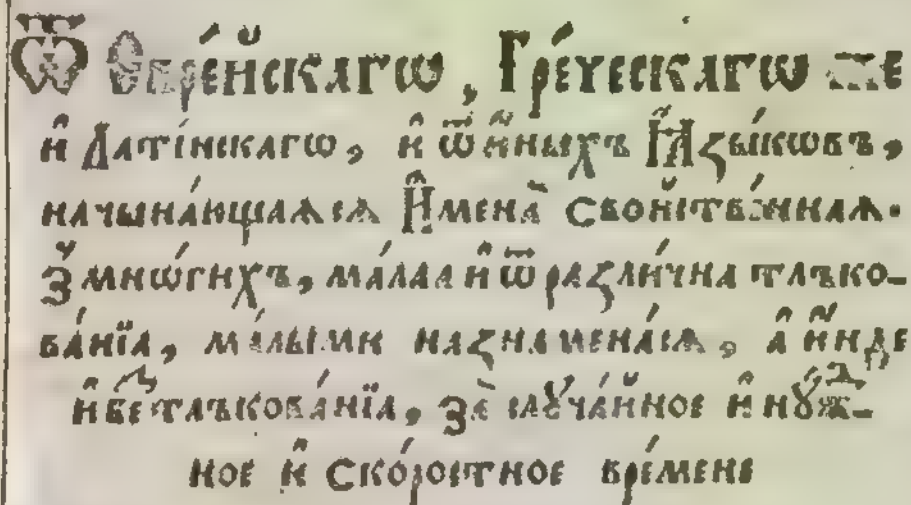 Ѿ Еврéйскагѡ, Грéческагѡ же
и҆ Латíнскагѡ, и҆ ѿ и҆́ныхъ Ꙗ҆зы́кѡвъ,
начына́ющаѧсѧ И҆мена̀ Свойстве́ннаѧ·
З̾ мнѡ́гихъ, ма́лаѧ и҆ ѿ разли́чна тлъко-
ва́нїа, ма́лыми назнамена́сѧ, а҆ и҆́нде
и҆ беⷥ тлъкова́нїа, за̀ слꙋча́йное и҆ нꙋⷤ-
ное и҆ Ско́ростное врéмене